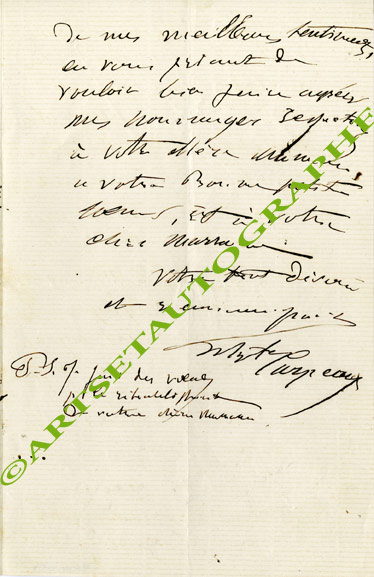 De mes meilleurs sentiments,
en vous priant de
vouloir bien faire agréer
mes hommages respect
à votre chère maman
à votre Bonne petite
soeur, et à votre
chère marraine
votre tout dévoué
et
Bte Carpeaux
P.S. Je fais des voeux
pr le rétablissement
de votre chère maman
©ARTSETAUTOGRAPHE